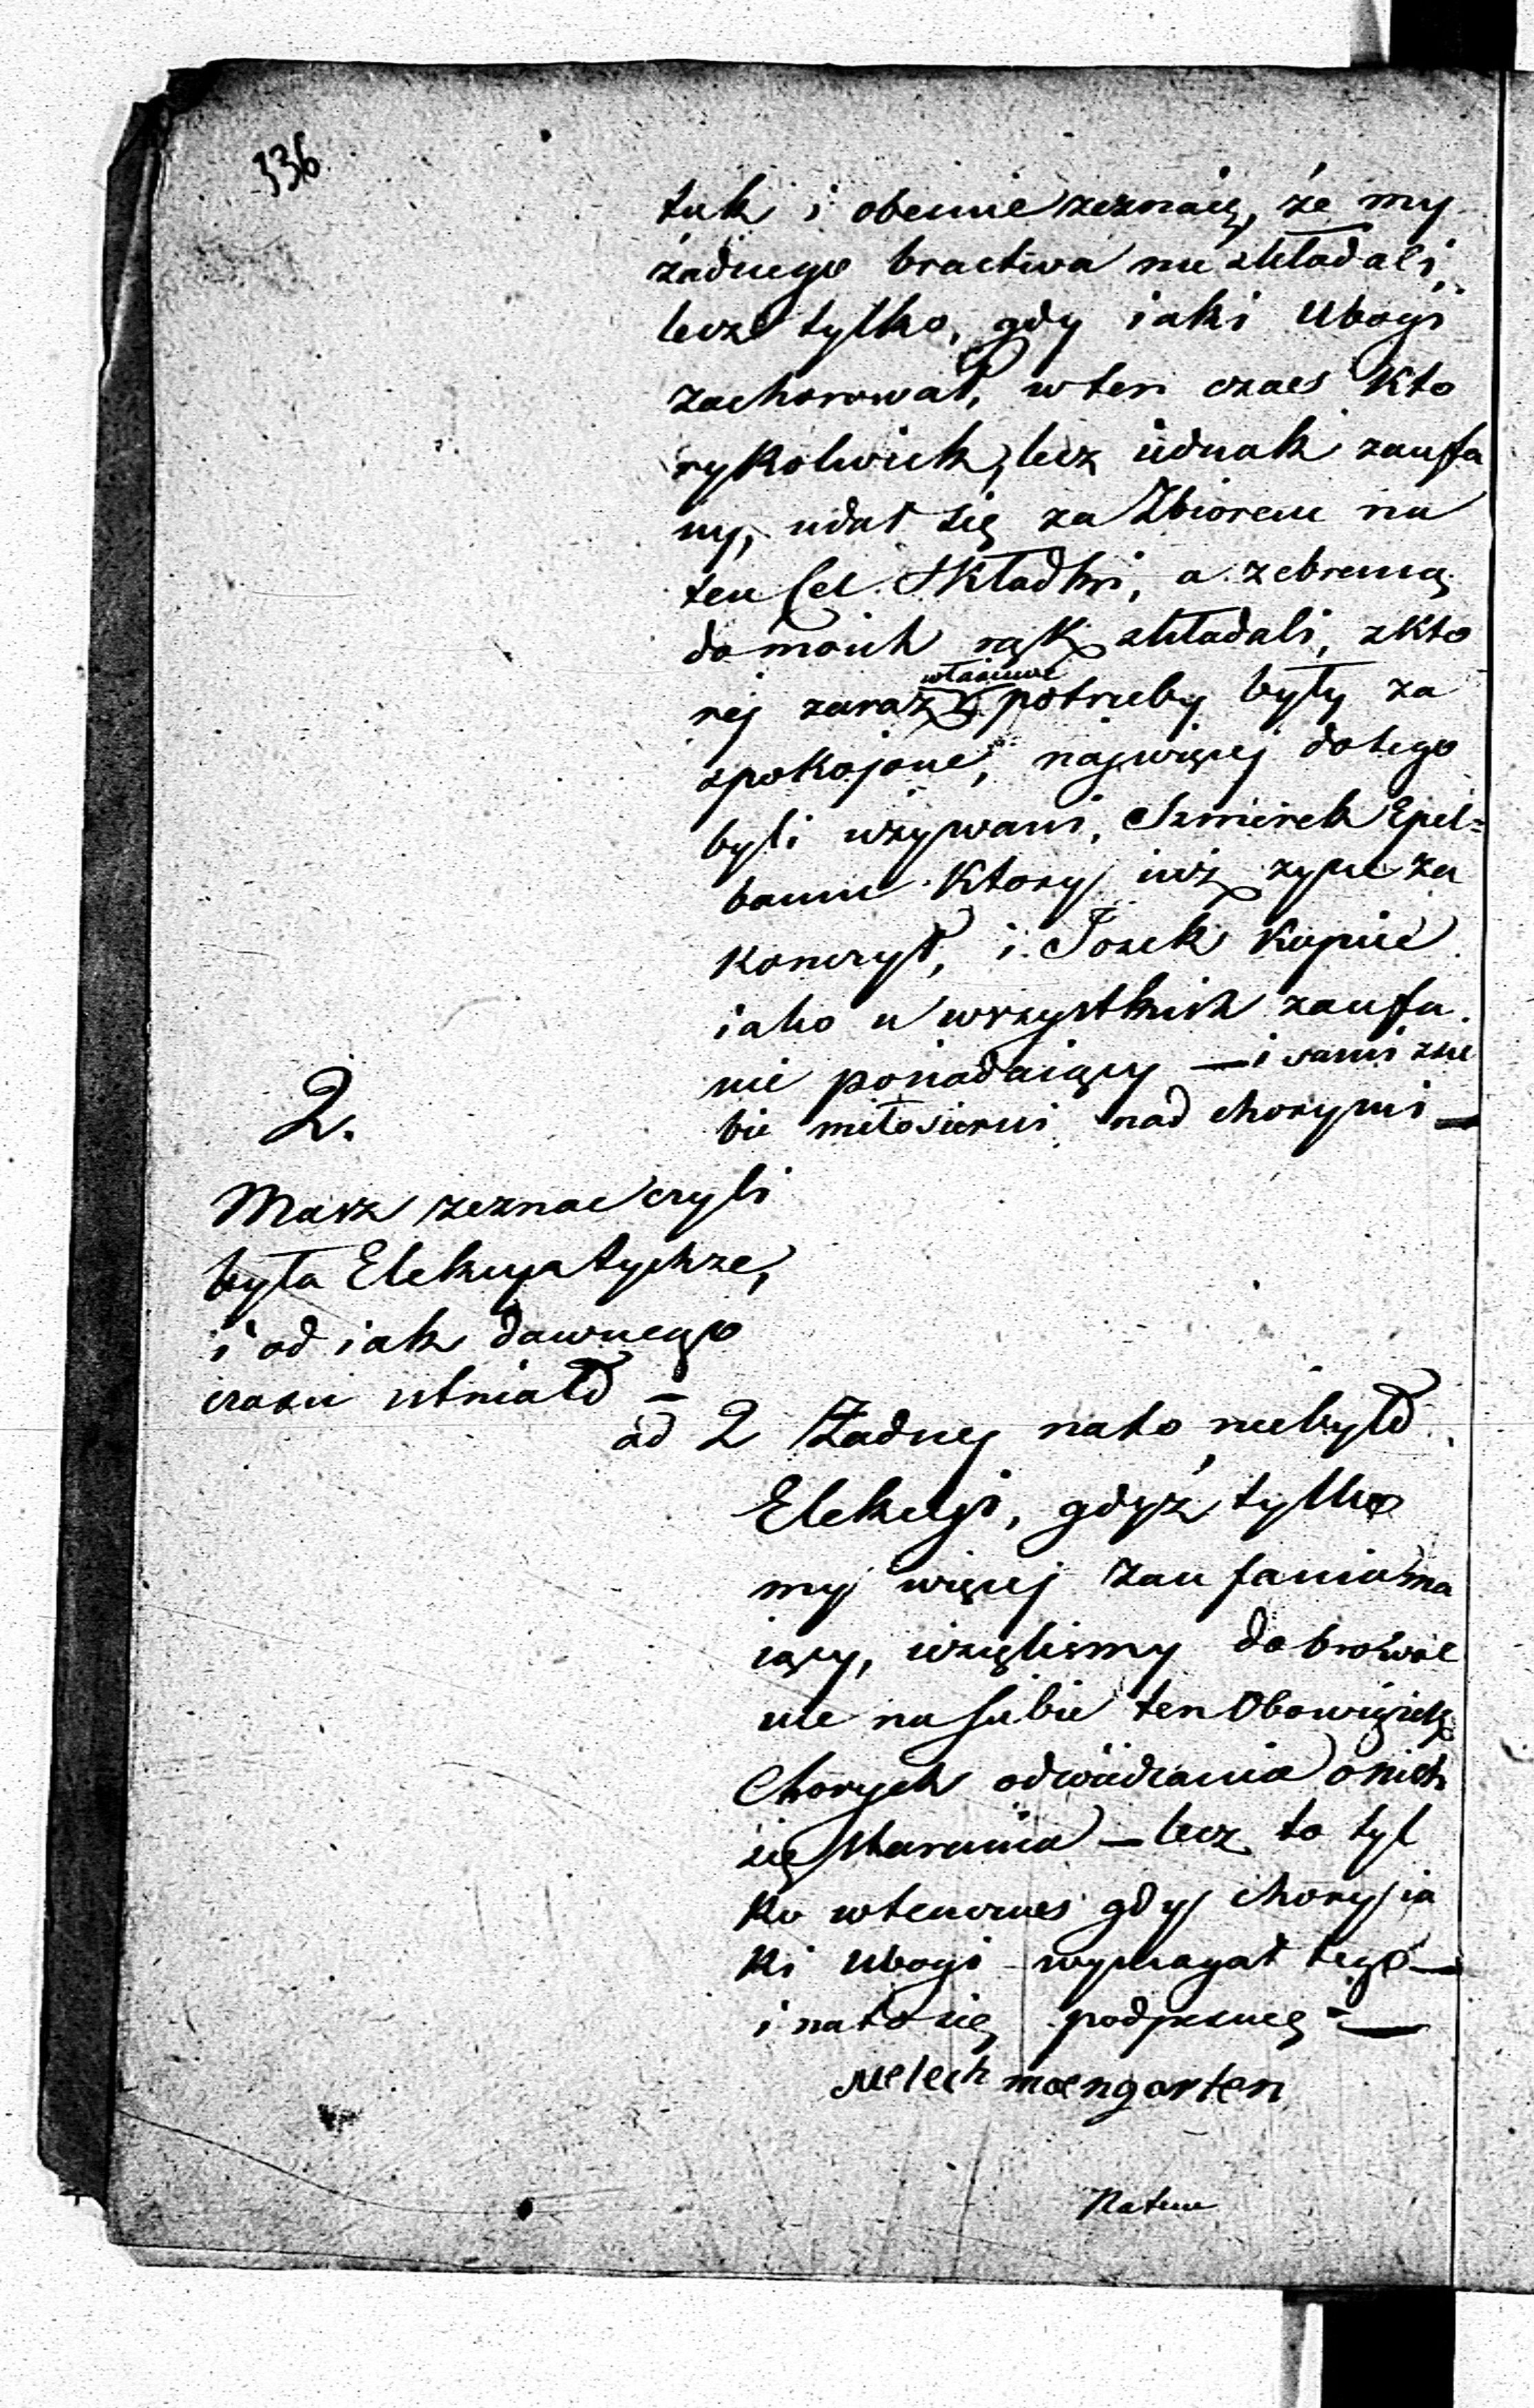 336
tak i obecnie zeznaię, że my
żadnego bractwa nie składali,
lecz tylko, gdy iaki Ubogi
zachorował, w ten czas kto
rykolwiek, lecz iednak zaufa
ny, udał się za Zbiorem na
ten Cel Składki, a zebraną
do moich rąk składali, z kto
rej zaraz właściwe potrzeby były za
spokojone, najwięcej do tego
byli używani, Szmerek Epel=
baum ktory iuż życie za
konczył, i Josek Kopiec
iako u wszystkich zaufa
nie posiadaiący — i sami z sie
bie miłosierni nad chorymi —
2.
Masz zeznac czyli
była Elekcya tychze,
i od iak dawnego
czasu istniało —
ad 2 Żadney na to niebyło
Elekcyi, gdyż tylko
my więcej zaufania ma
iący, wzięliśmy dobrowol
nie na siebie ten Obowiązek
Chorych odwiedzania o nich
się starania — lecz to tyl
ko wtenczas gdy chory ia
ki Ubogi wymagał tego —
i na to się podpisuię —
Melech maengarten
Ratun